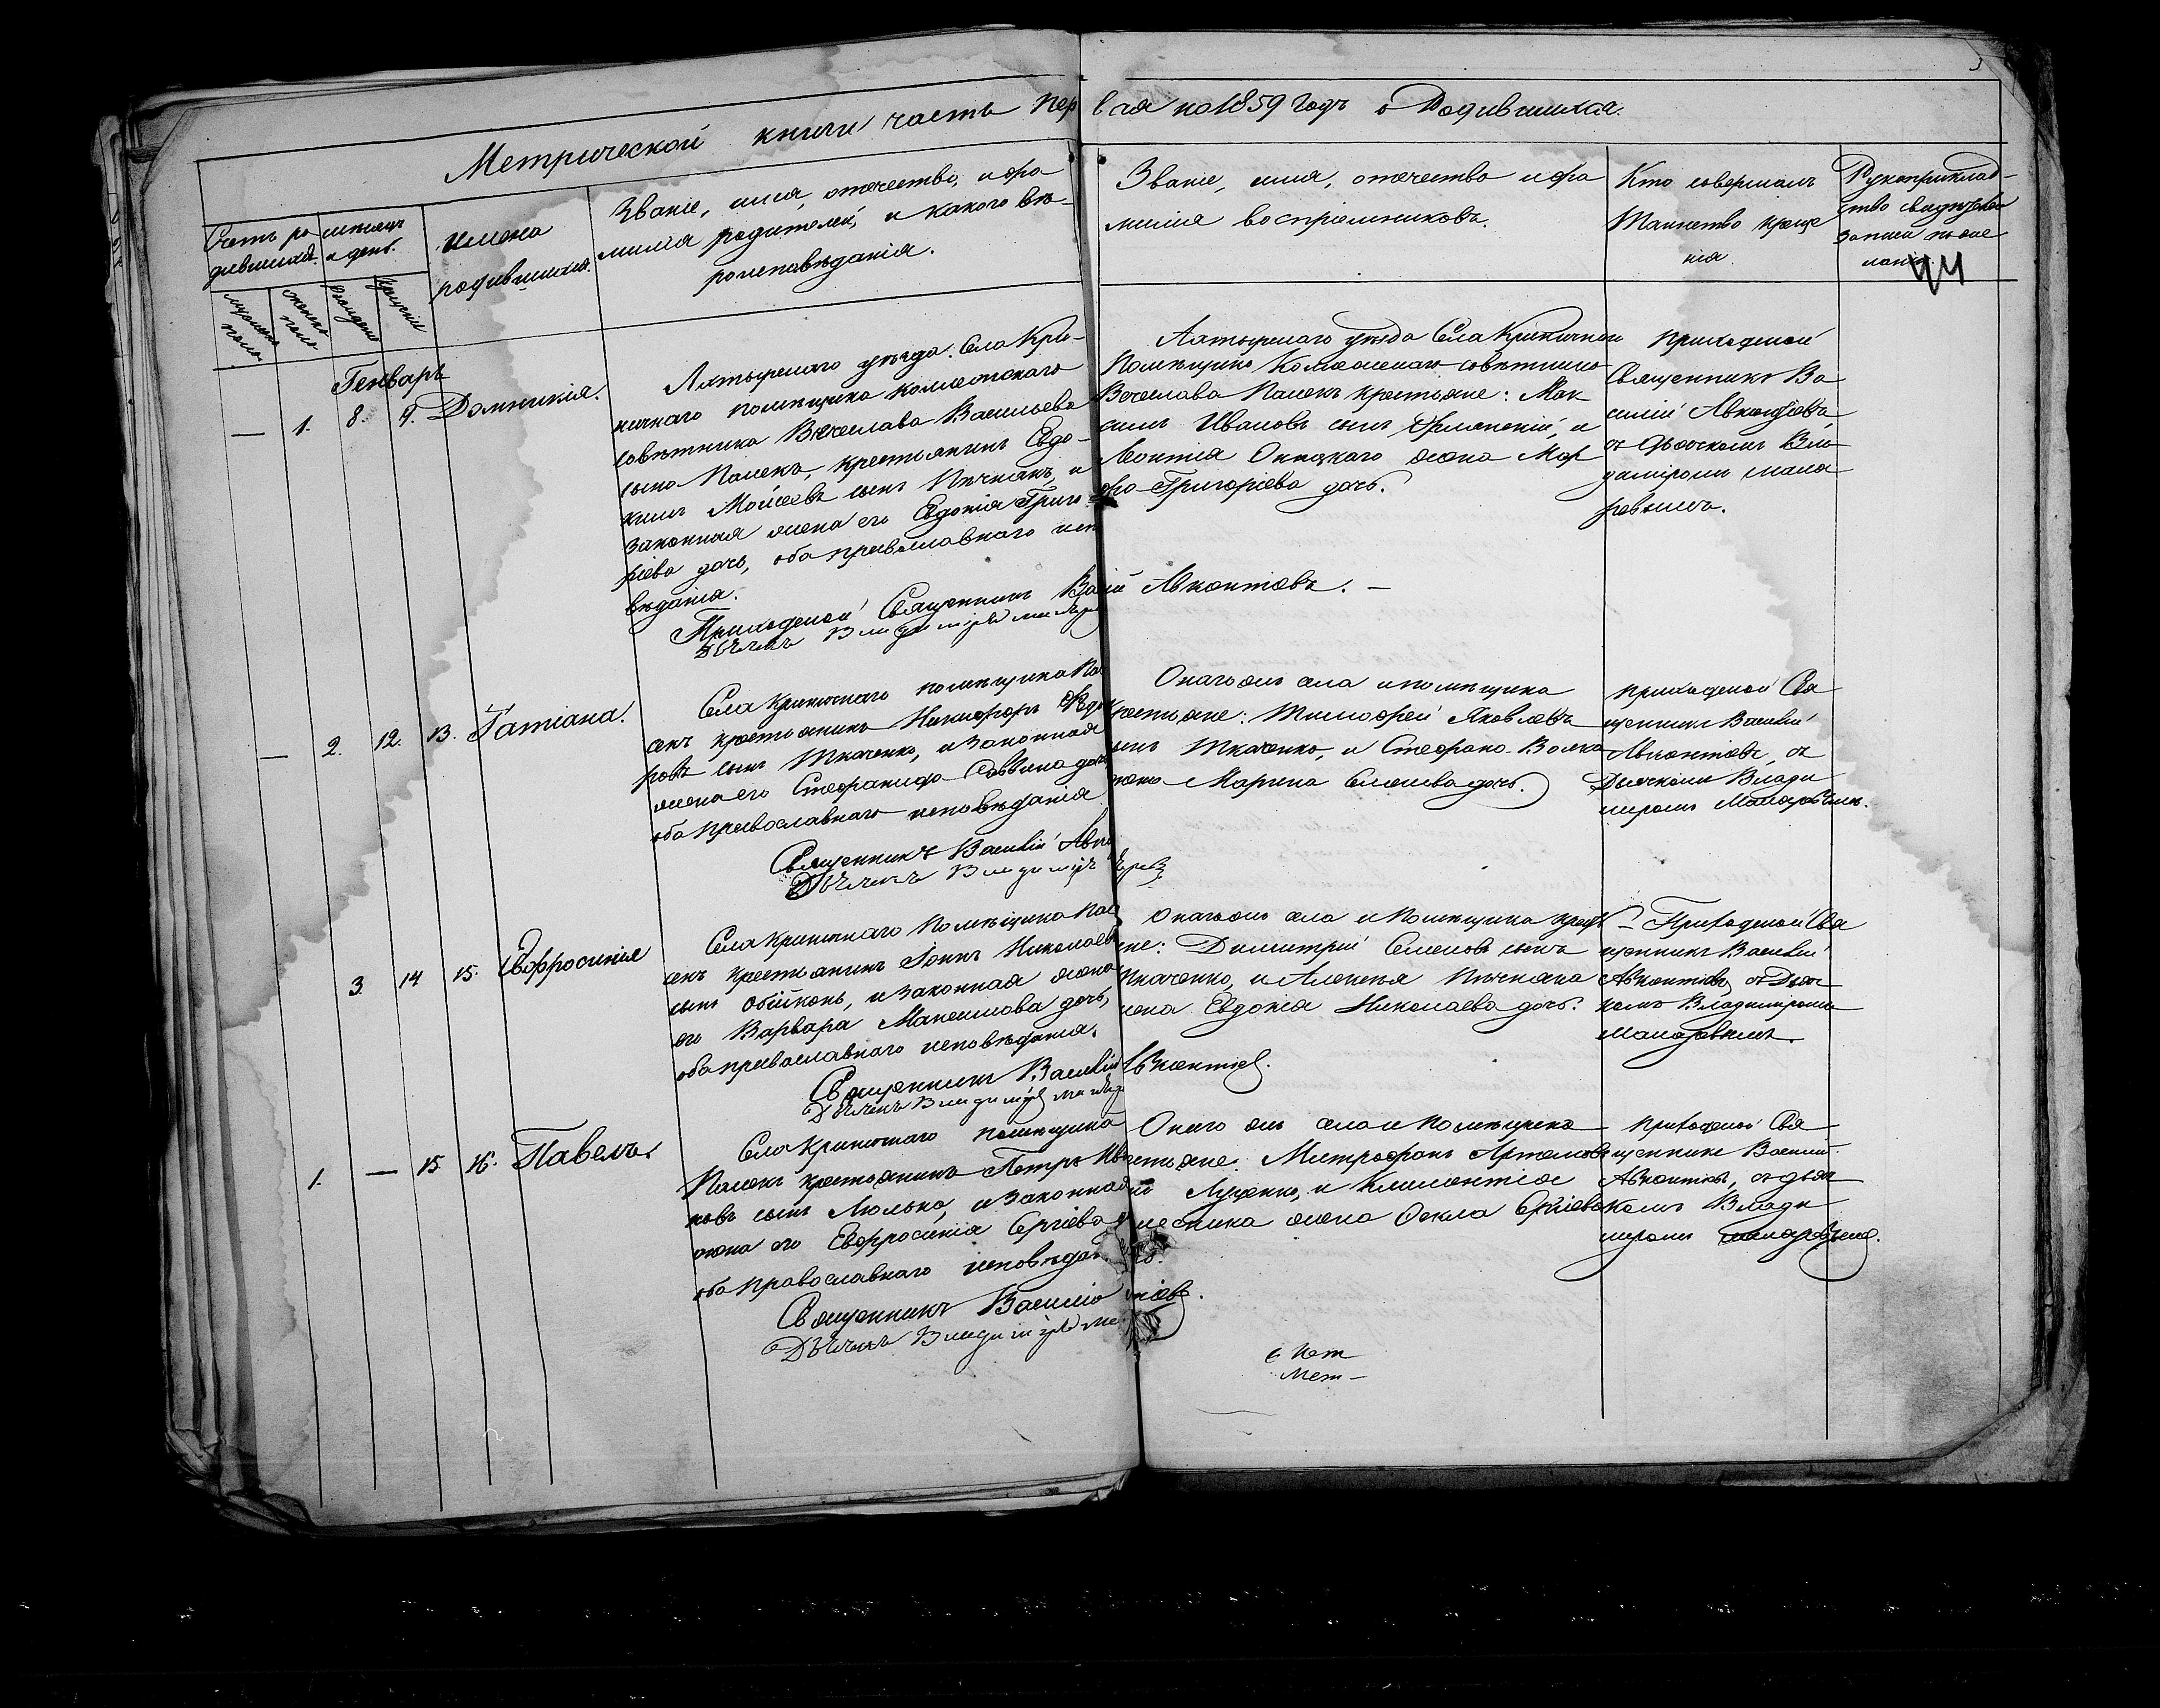 Метрической книги часть первая на 1859 годъ о Родившихся.
Счетъ ро
дившихся.
месяцъ
и день.
Имена
родившихся.
Званіе, имя, отечество, и фа
милія родителей, и какого вѣ-
роисповѣданія.
Званіе, имя, отечество и фа
милія воспріемниковъ.
Кто совершалъ
Таинство креще
нія.
Рукоприклад-
ство свидѣтелей
записи по же
ланію.
44
мужеска
пола.
женска
пола
рожденія
крещенія
Генварь
— 1. 8. 9. Домникія.
Ахтырскаго уѣзда. Села Кри-
ничнаго помѣщика коллежскаго
совѣтника Вячеслава Васильева
сына Пасекъ, крестьянинъ Евдо-
кимъ Мойсеевъ сынъ Пѣчнякъ, и
законная жена его Евдокія Григо-
ріева дочь, оба православнаго испо
вѣданія.
Приходской Священникъ Васи
Дьячекъ Владиміръ
Ахтырскаго уѣзда Села Криничнаго
Помѣщика Коллежскаго совѣтника
Вячеслава Пасекъ крестьяне: Мак
симъ Ивановъ сынъ и
Леонтія жена Мар
фа Григоріева дочь.
лій Авксентіевъ. —
Приходской
Священникъ Ва
силій Авксентіевъ
съ дьячкомъ Вла
диміромъ Мака
ревымъ.
— 2. 12. 13. Татіана.
Села Криничнаго помѣщика Па
секъ крестьянинъ Никифоръ Федо
ровъ сынъ Ткаченко, и законная
жена его Стефанида Саввина дочь
оба православнаго исповѣданія
Священникъ Василій Авк
Дьячекъ Владиміръ
Онаго жъ села и помѣщика
крестьяне: Тимофей Яковлевъ
сынъ Ткаченко, и Стефана Волка
жена Марина дочь.
приходской Свя
щенникъ Василій
Авксентіевъ, съ
Дьячкомъ Влади
миромъ Макаревымъ.
3. 14 15. Евфросинія
Села Криничнаго Помѣщика Па
секъ крестьянинъ Іоаннъ Николаевъ
сынъ и законная жена
его Варвара Максимова дочь,
оба православнаго исповѣданія.
Священникъ Василій
Дьячекъ Владиміръ
Онагожъ села и Помѣщика крестья
не: Димитрій Семеновъ сынъ
Ткаченко, и Алексѣя Пѣчняка
жена Евдокія Николаева дочь.
Авксентіевъ.
Приходской Свя
щенникъ Василій
Авксентіевъ съ Дьяч
комъ Владимиромъ
Макаревымъ.
1. — 15 16. Павелъ.
Села Криничнаго помѣщика
Пасекъ крестьянинъ Петръ Ива
новъ сынъ Люлька, и законная
жена его Евфросинія Сергіева
оба православнаго исповѣдан
Священникъ Василій
Дьячекъ Владиміръ Ма
Онаго жъ села и Помѣщика
крестьяне. Митрофанъ Артемовъ
Луценко, и Климентія
жена Фекла Сергіева
дочь.
тіевъ.
Приходской Свя
щенникъ Василій
Авксентіевъ, съ дьяч
комъ Влади
миромъ Макаревымъ.